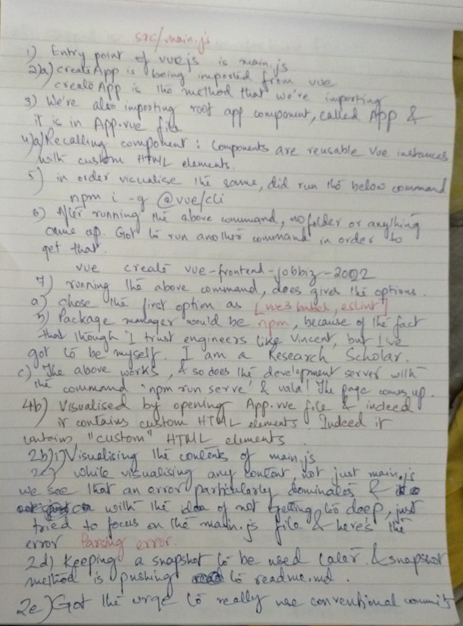 src/main.js
1) Entry point of vuejs is main.js
2a) createApp is being imported from vue
createApp is the method that we're importing
3) We're also importing root app component, called App &
it is in App.vue file
4)a) Recalling component : Components are reusable Vue instances
with custom HTML elements.
5) in order visualise the same, did run the below command
npm i -g @vue/cli
6) After running the above command, no folder or anything
came up. Got to run another command in order to
get that.
vue create vue-frontend-jobbiz-2022
7) running the above command, does gives the options.
a) chose the first option as [vue3 babel, eslint]
b) Package manager would be npm, because of the fact
that though I trust engineers like Vincent, but I've
got to be myself. I am a Research Scholar.
c) The above works, & so does the development server with
the command 'npm run serve' & voila! The page comes up.
4b) Visualised by opening App.vue file & indeed
it contains custom HTML elements Indeed it
contains "custom" HTML elements
2b) Visualising the contents of main.js
2c) while visualising any content not just main.js
we see that an error particularly dominates &
with the idea of not getting too deep, just
tried to focus on the main.js file & here's the
error Parsing error.
2d) Keeping a snapshot to be used later. & snapshot
method is pushing to readme.md.
2e) Got the urge to really use conventional commits